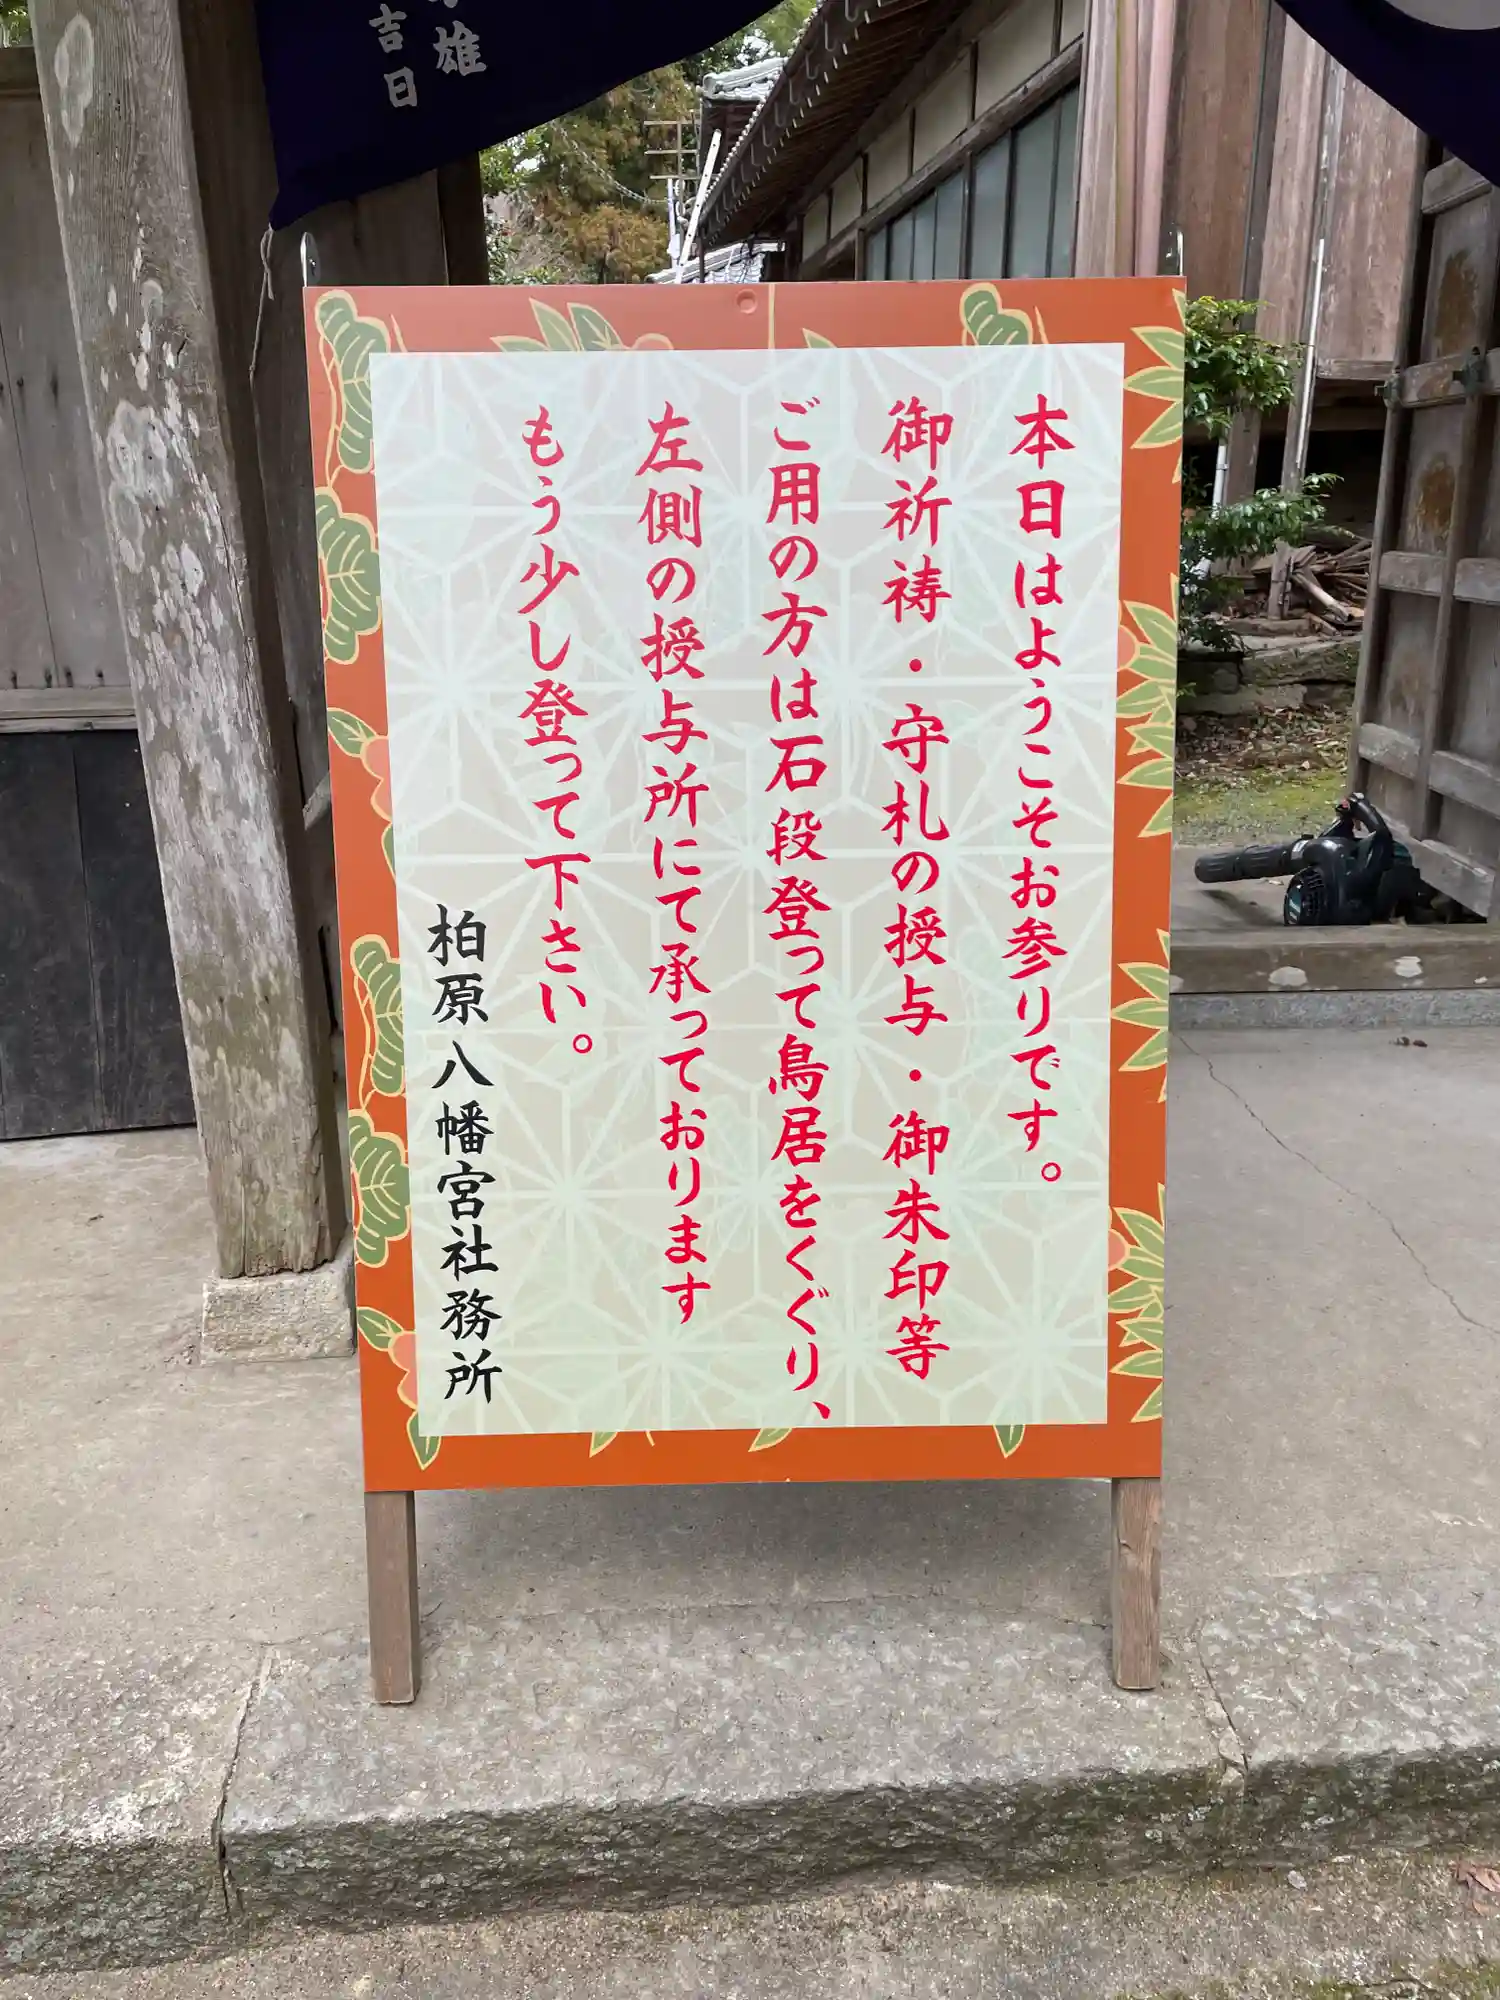 本日はようこそお参りです。
御祈祷・守札の授与・御朱印等
ご用の方は石段登って鳥居をくぐり、
左側の授与所にて承っております
もう少し登って下さい。
柏原八幡宮社務所
雄
吉日